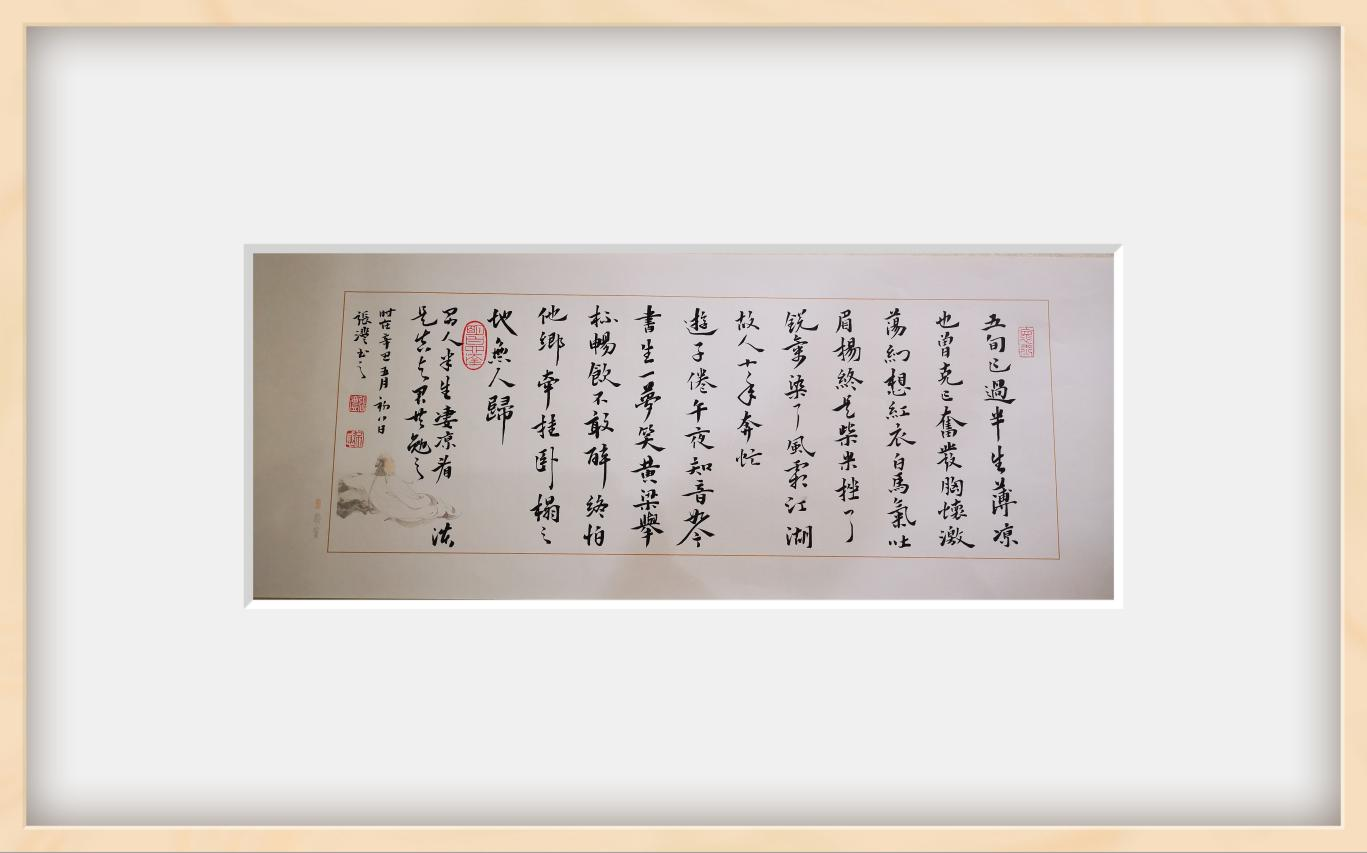 五旬已過半生薄凉
也曾克己奮發胸懷激
蕩幻想紅衣白馬氣吐
眉楊終是柴米挫了
銳氣染了風霜江湖
故人十年奔忙
遊子倦午夜知音如今
書生一夢笑黄梁舉
杯暢飲不敢醉終怕
他鄉牽挂卧榻之
地無人歸
人半生凄凉看淡
是真与君共勉之
时在辛丑五月初八日
張灃书之